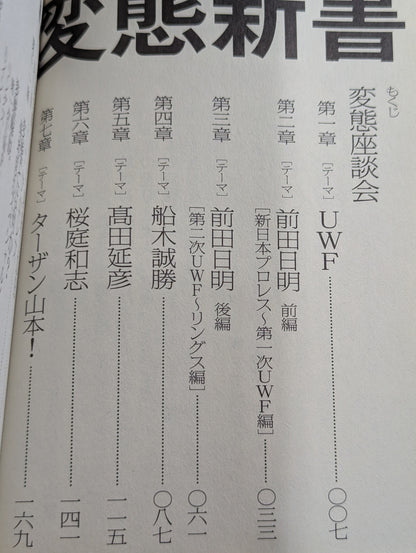 変態新書
もくじ
変態座談会
第一章 [テーマ] UWF……〇〇七
第二章 [テーマ] 前田日明 前編
[新日本プロレス〜第一次UWF編]……〇三三
第三章 [テーマ] 前田日明 後編
[第二次UWF〜リングス編]……〇六一
第四章 [テーマ] 船木誠勝……〇八七
第五章 [テーマ] 髙田延彦……一一五
第六章 [テーマ] 桜庭和志……一四一
第七章 [テーマ] ターザン山本!……一六九